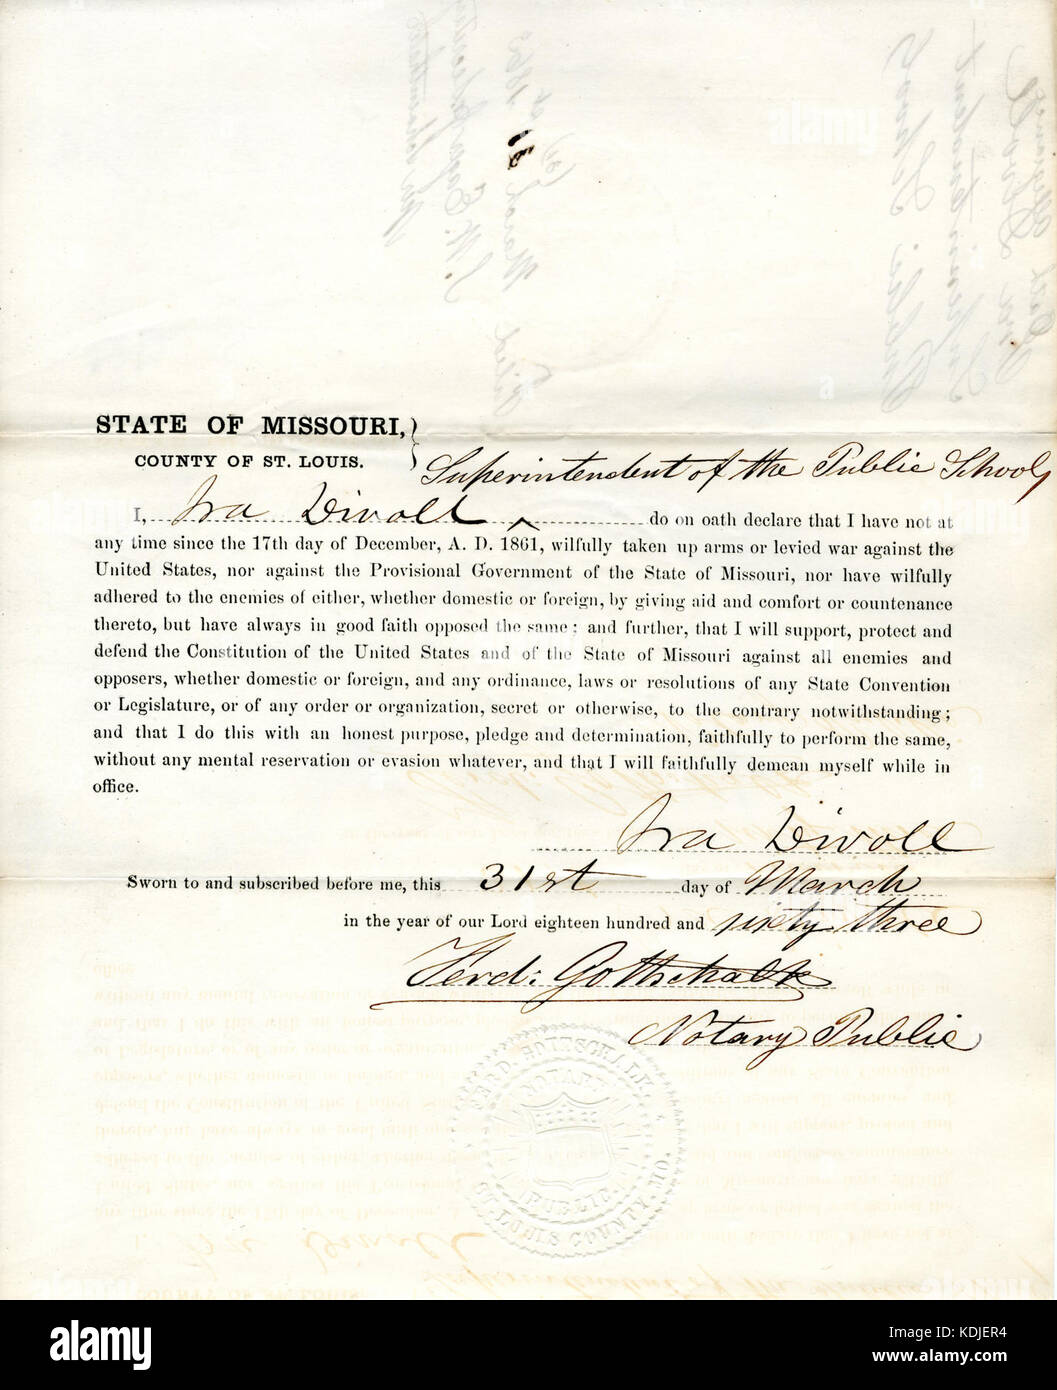 STATE OF MISSOURI,
COUNTY OF ST. LOUIS.
Superintendent of the Public Schools
I, Ira Divoll ^ do on oath declare that I have not at
any time since the 17th day of December, A. D. 1861, wilfully taken up arms or levied war against the
United States, nor against the Provisional Government of the State of Missouri, nor have wilfully
adhered to the enemies of either, whether domestic or foreign, by giving aid and comfort or countenance
thereto, but have always in good faith opposed the same; and further, that I will support, protect and
defend the Constitution of the United States and of the State of Missouri against all enemies and
opposers, whether domestic or foreign, and any ordinance, laws or resolutions of any State Convention
or Legislature, or of any order or organization, secret or otherwise, to the contrary notwithstanding;
and that I do this with an honest purpose, pledge and determination, faithfully to perform the same,
without any mental reservation or evasion whatever, and that I will faithfully demean myself while in
office.
Ira Divoll
Sworn to and subscribed before me, this 31st day of March
in the year of our Lord eighteen hundred and sixty three
Ferd: Gottschalk
Notary Public
FERD. GOTTSCHALK
NOTARY
PUBLIC
ST. LOUIS COUNTY, MO.
alamy
Image ID: KDJER4
www.alamy.com